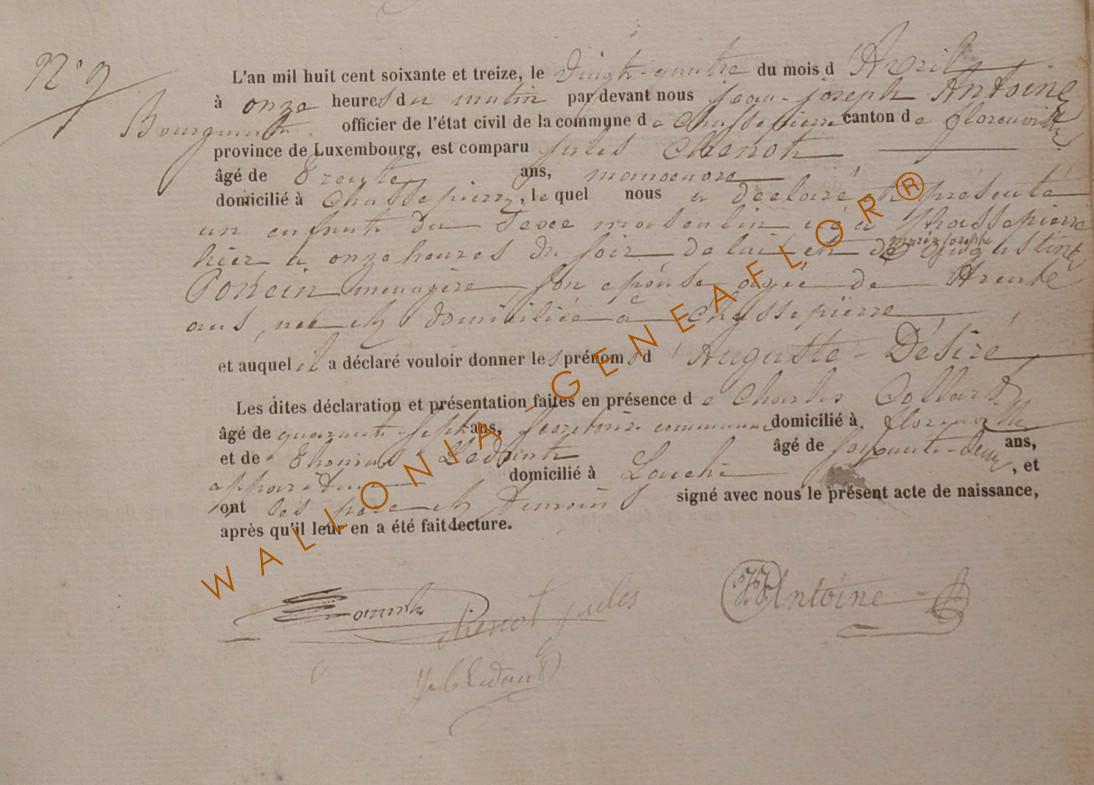 N° 9
L'an mil huit cent soixante et treize, le vingt-quatre du mois d'Avril
à onze heures du matin par devant nous Jean-Joseph Antoine
Bourgmestre officier de l'état civil de la commune de Chassepierre canton de Florenville
province de Luxembourg, est comparu Jules Chenot
âgé de trente ans, manoeuvre
domicilié à Chassepierre, le quel nous a déclaré et présenté
un enfant du sexe masculin né à Chassepierre
hier à onze heures du soir de lui et de marie josephe Augustine
Poncin ménagère son épouse agée de trente
ans, née et domiciliée à Chassepierre
et auquel il a déclaré vouloir donner les prénoms d'Auguste-Désiré
Les dites déclaration et présentation faites en présence de Charles Collard
âgé de quarante-sept ans, secrétaire communal domicilié à Florenville
et de Thomas Ledent âgé de soixante-deux ans,
domicilié à Laiche, et
ont les père et témoins signé avec nous le présent acte de naissance,
après qu'il leur en a été fait lecture.
Chenot jules
JJ Antoine
WALLONIA-GENEAFLOR®